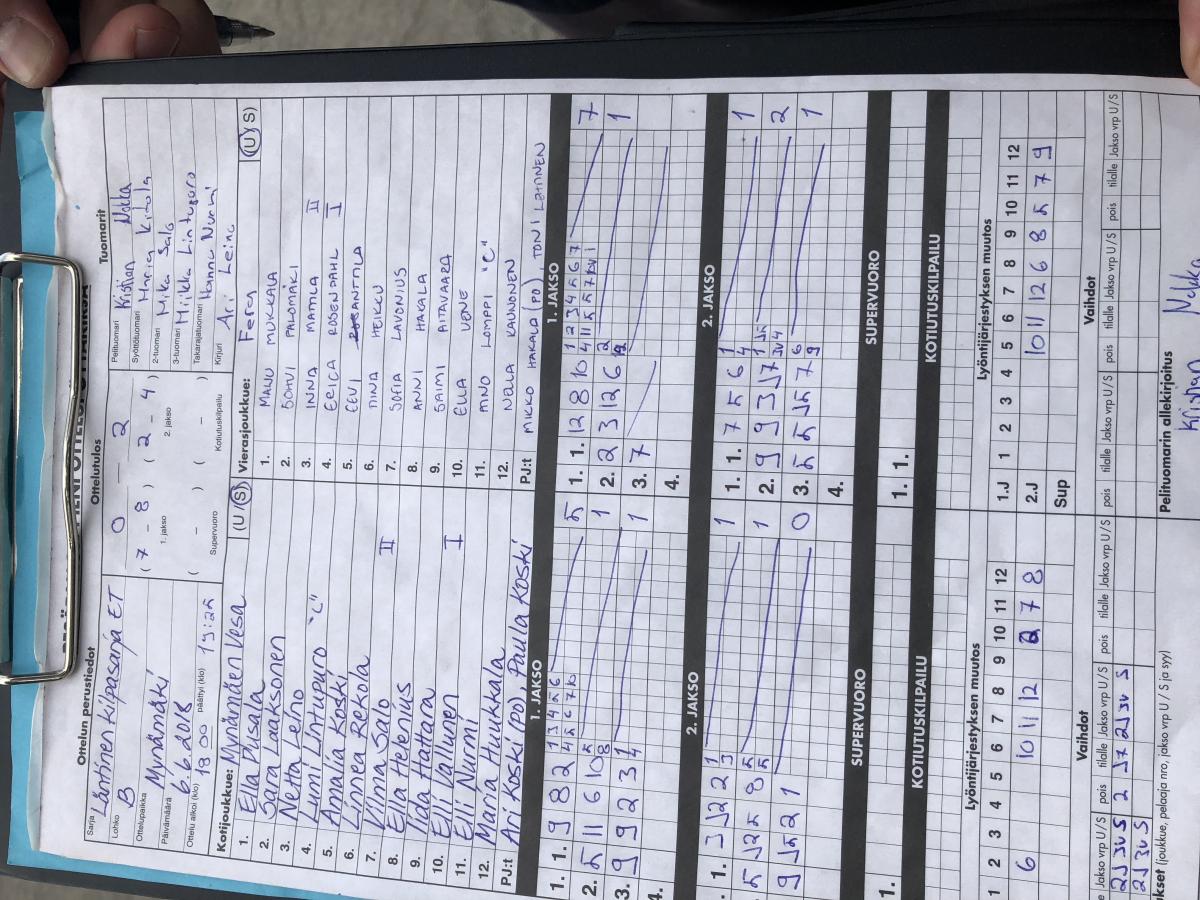 PIENI OTTELUPÖYTÄKIRJA
Ottelun perustiedot
Sarja Läntinen Kilpasarja ET
Lohko B
Ottelupaikka Mynämäki
Päivämäärä 6.6.2018
Ottelu alkoi (klo) 18 00 päättyi (klo) 19:25
Ottelutulos
0 – 2
( 7 – 8 ) ( 2 – 4 )
1. jakso 2. jakso
( – ) ( – )
Supervuoro Kotiutuskilpailu
Tuomarit
Pelituomari Kristian Nokka
Syöttötuomari Maria Kitola
2-tuomari Mika Salo
3-tuomari Miikka Lintupuro
Takarajatuomari Hannu Nurmi
Kirjuri Ari Leino
Kotijoukkue: Mynämäen Vesa (U/S)
1. Ella Pusala
2. Sara Laaksonen
3. Netta Lehto
4. Lumi Lintupuro "C"
5. Amalia Koski
6. Linnea Rekola
7. Vilma Salo
8. Ella Helenius II
9. Iida Hattara
10. Elli Valonen
11. Elli Nurmi I
12. Maria Huukkala
PJ:t Ari Koski (PO) Paula Koski
Vierasjoukkue: Fera (U/S)
1. MANU MUKKALA
2. SOHVI PALOMÄKI
3. INNA MATTILA II
4. EERICA ROSENDAHL I
5. EEVI SANTTILA
6. MINA HEIKKU
7. SOFIA LAVONIUS
8. ANNI HAKALA
9. SAIMI AITAVAARA
10. ELLA VENE
11. MINO LOMPPI "C"
12. NELLA KAUNONEN
PJ:t MIKKO HAKALA (PO), TONI LAHTINEN
1. JAKSO
1. 1. 9 8 2 1 3 4 5 6 5
2. 5 11 6 10 1
3. 9 9 2 3 1
4.
1. JAKSO
1. 1. 12 8 10 1 2 3 4 5 6 7 7
2. 2 3 12 6 1
3. 7
4.
2. JAKSO
1. 1. 3 J2 2 1
5 J2 8 1
9 2 1 0
2. JAKSO
1. 1. 7 5 6 1
2. 9 9 3 J7 2
3. 5 J5 7 1
4.
SUPERVUORO
1.
SUPERVUORO
1. 1.
KOTIUTUSKILPAILU
KOTIUTUSKILPAILU
Lyöntijärjestyksen muutos
1 2 3 4 5 6 7 8 9 10 11 12
6 10 11 12 2 7 8
Lyöntijärjestyksen muutos
1.J 1 2 3 4 5 6 7 8 9 10 11 12
2.J 10 11 12 6 8 5 7 9
Sup
Vaihdot
Jakso vrp U/S pois tilalle Jakso vrp U/S pois tilalle Jakso vrp U/S
2J 3v S 2 J7 2J 3v S
2J 3v S
Vaihdot
pois tilalle Jakso vrp U/S pois tilalle Jakso vrp U/S pois tilalle Jakso vrp U/S
(joukkue, pelaaja nro, jakso vrp U / S ja syy)
Pelituomarin allekirjoitus
Kristian Nokka